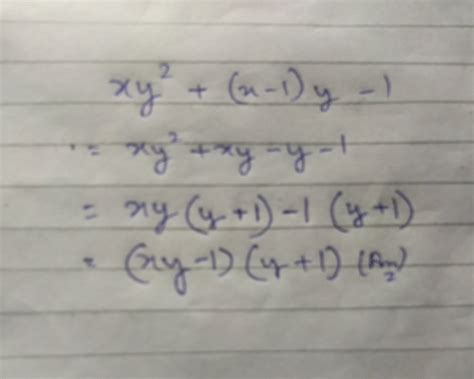 xy² + (x-1)y - 1
= xy² + xy - y - 1
= xy (y+1) - 1 (y+1)
= (xy-1) (y+1) (Ans)